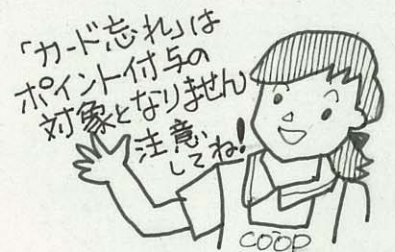 「カード忘れ」は
ポイント付与の
対象となりません
注意
してね!
COOP